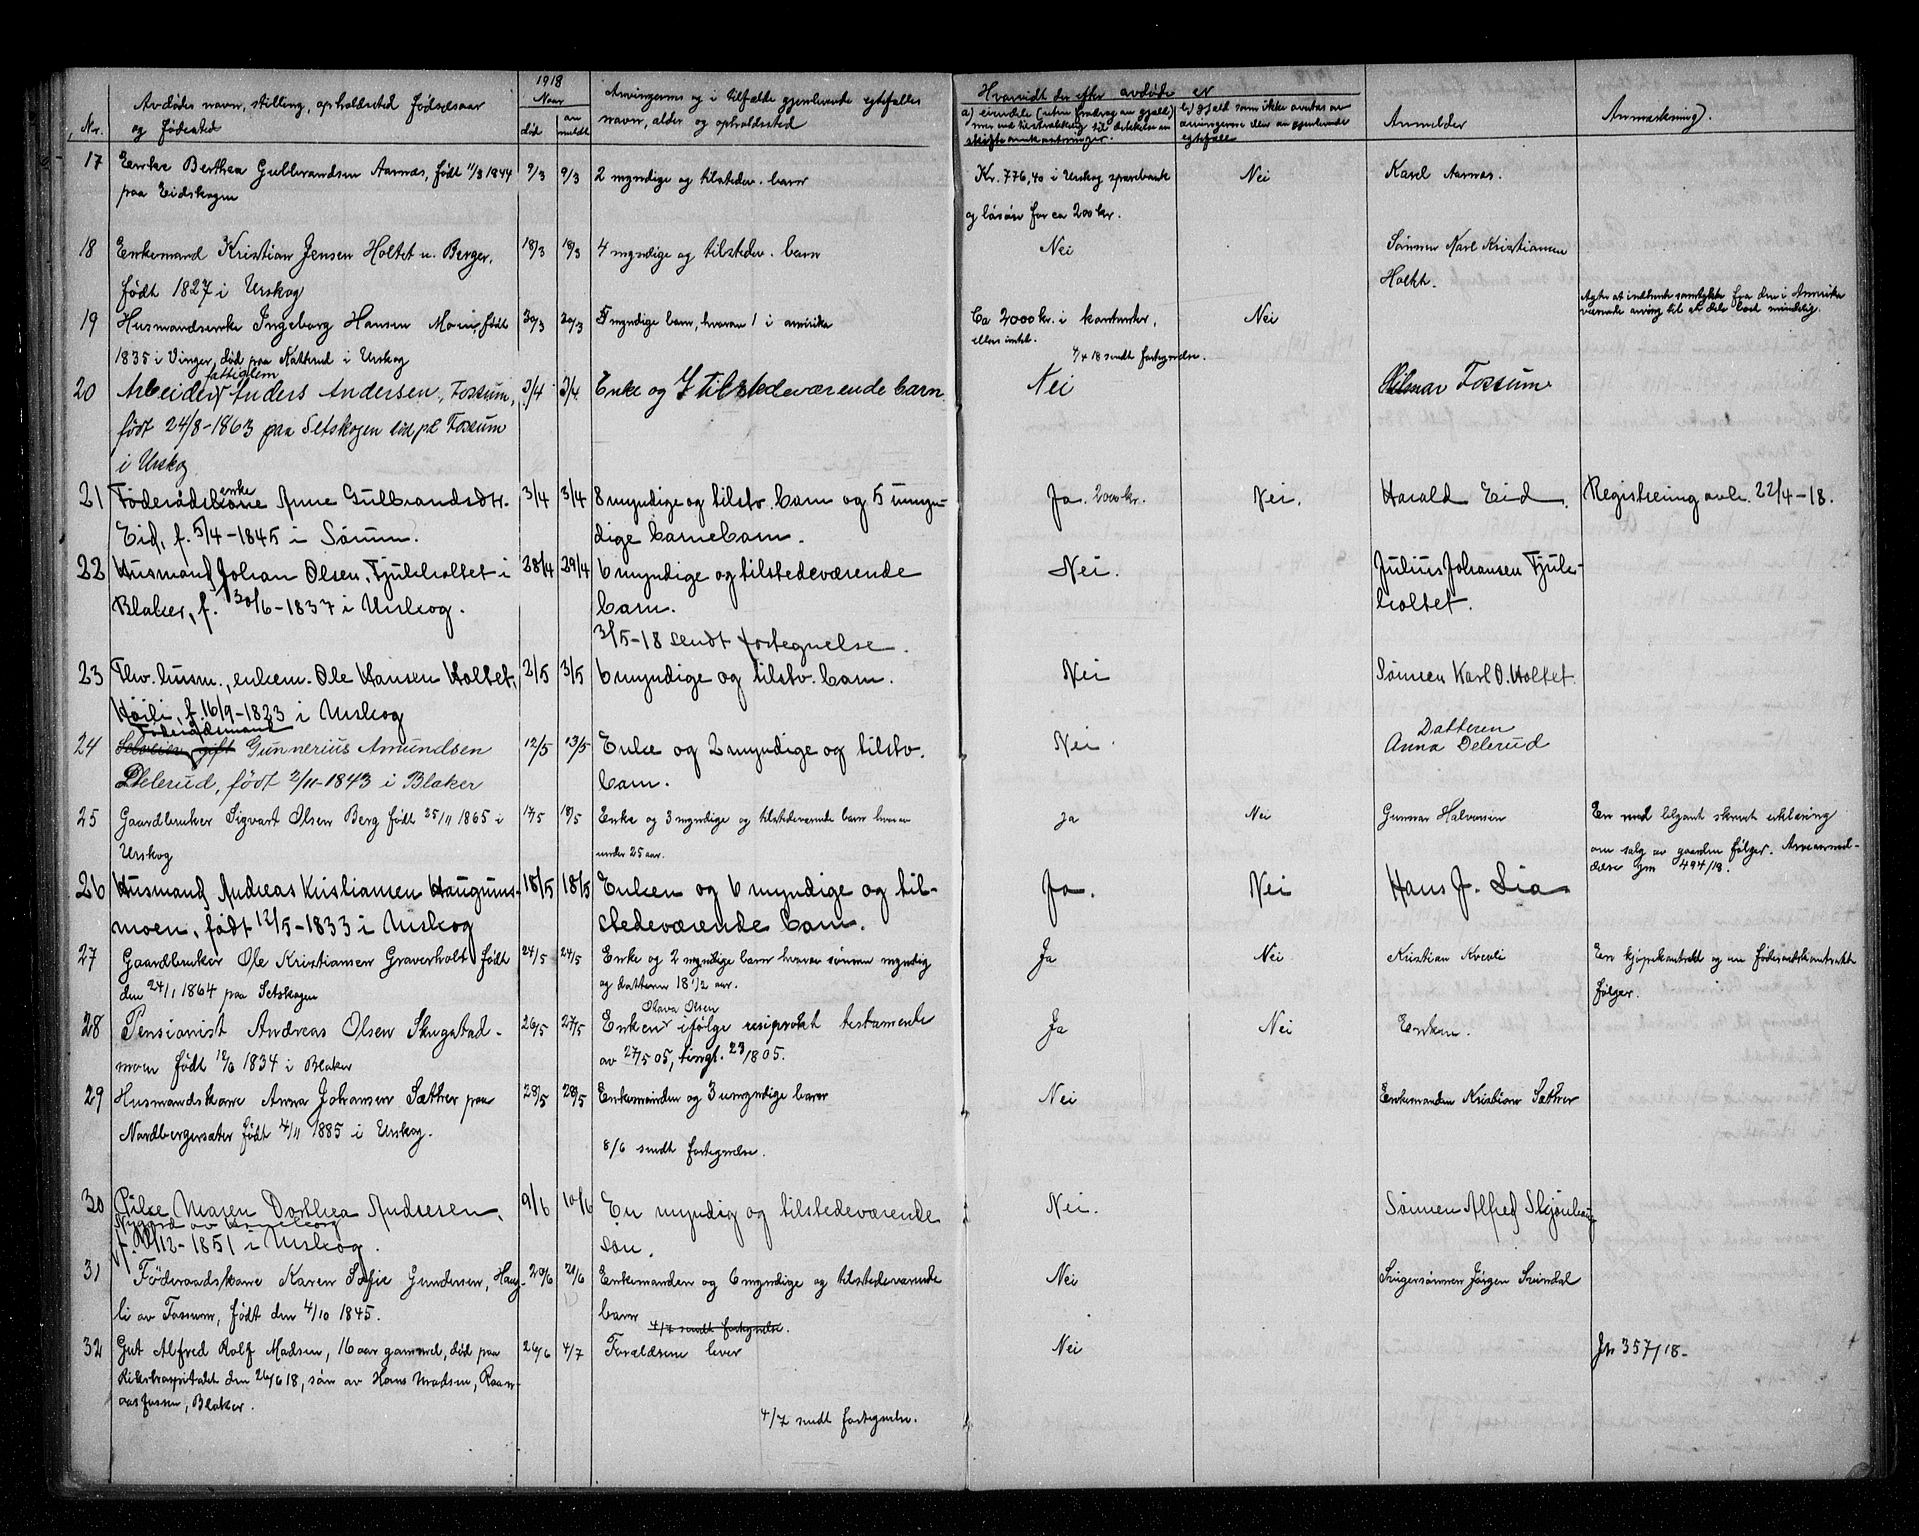 1918
Nr. Avdødes navn, stilling, opholdssted fødselsaar og fødested
Naar død anmeldt
Arvingernes og i tilfælde gjenlevende egtefælles navn, alder og opholdssted
Hvorvidt der efter avdøde er
a) eiendele (uten fradrag av gjæld) mer end tilstrækkelig til dækkelse av skifteomkostninger.
b) gjæld som ikke overtas av arvingerne eller av gjenlevende egtefælle
Anmelder
Anmerkning
17 Enke Berthea Gulbrandsen Aarnæs, født 11/3 1844 9/3 9/3 2 myndige og tilstedev. barn Kr. 776,40 i Urskog sparebank Nei Karl Aarnæs.
paa Eidskogen og løsøre for ca 200 kr.
18 Enkemand Kristian Jensen Holtet u. Berger, 18/3 18/3 4 myndige og tilstedev. barn Nei Sønnen Karl Kristiansen
født 1827 i Urskog Holtet.
19 Husmandsenke Ingeborg Hansen Moen født 20/3 20/3 5 myndige barn, hvorav 1 i amerika Ca 2000 kr. i kontanter, Nei Agter at indhente samtykke fra den i Amerika
ellers intet. værende arving til at dele boet mindelig.
1835 i Vinger, død paa Natterud i Urskog 4/4 18 sendt fortegnelse.
fattiglem
20 Arbeider Anders Andersen, Fossum, 2/4 3/4 Enke og 7 tilstedeværende barn Nei Hilmar Fossum
født 24/8-1863 paa Setskogen Fossum
i Urskog
enke
21 Føderådskone Anne Gulbrandsdtr. 3/4 3/4 8 myndige og tilstv. barn og 5 umyn- Ja. 2000 kr. Nei. Harald Eid. Registrering avh. 22/4-18.
Eid, f. 5/4-1845 i Sørum. dige barnebarn.
22 Husmand Johan Olsen, Tjuleholtet i 28/4 29/4 6 myndige og tilstedeværende Nei. Julius Johansen Tjule-
Blaker, f. 30/6-1837 i Urskog. barn. holtet.
3/5-18 sendt fortegnelse.
23 Fhv. husm., enkem. Ole Hansen Holtet, 2/5 3/5 6 myndige og tilstv. barn. Nei Sønnen Karl O. Holtet.
Høili, f. 16/9-1823 i Urskog
Føderådsmand
24 Selveier, gift Gunnerius Amundsen 12/5 13/5 Enke og 2 myndige og tilstv. Nei. Datteren
Delerud, født 2/11-1843 i Blaker barn. Anna Delerud
25 Gaardbruker Sigvart Olsen Berg født 25/11 1865 i 17/5 18/5 Enke og 3 myndige og tilstedeværende barn hvorav ja Nei Gunnar Halvorsen En med blyant skrevet erklæring
Urskog under 25 aar. om salg av gaarden følger.
494/18.
26 Husmand Andreas Kristiansen Haugums- 18/5 18/5 Enken og 6 myndige og til- Ja. Nei Hans J. Lia
moen, født 12/5-1833 i Urskog stedeværende barn.
27 Gaardbruker Ole Kristiansen Graverholt født 24/5 24/5 Enke og 2 myndige barn hvorav sønnen myndig Ja Nei Kristian Kveli En kjøpekontrakt og en føderaadskontrakt
den 24/1 1864 paa Setskogen og datteren 18 1/2 aar. følger.
Olava Olsen
28 Pensionist Andreas Olsen Skugstad- 26/5 27/5 Enken ifølge resiprokt testamente Ja Nei Enken.
moen født 12/6 1834 i Blaker av 27/5 05, tingl. 23/8 05.
29 Husmandskone Anna Johansen Sæther paa 28/5 28/5 Enkemanden og 3 umyndige barn Nei Enkemanden Kristian Sæther
Nordbergersæter født 4/11 1885 i Urskog. 8/6 sendt fortegnelse.
30 Pike Maren Dorthea Andresen, 9/6 10/6 En myndig og tilstedeværende Nei. Sønnen Alfred Skjønhaug
Nygard av
f. /12-1851 i Urskog. søn.
31 Føderaadskone Karen Sofie Gundersen, Haug- 20/6 21/6 Enkemanden og 6 myndige og tilstedeværende Nei Svigersønnen Jørgen Svindal
li av Fossum, født den 4/10 1845. barn 4/7 sendt fortegnelse.
32 Gut Alfred Rolf Madsen, 16 aar gammel, død paa 26/6 4/7 Forældrene lever Nei Jn 357/18-
Rikshospitalet den 26/6 18, søn av Hans Madsen, Raan-
aasfossen, Blaker. 4/7 sendt fortegnelse.